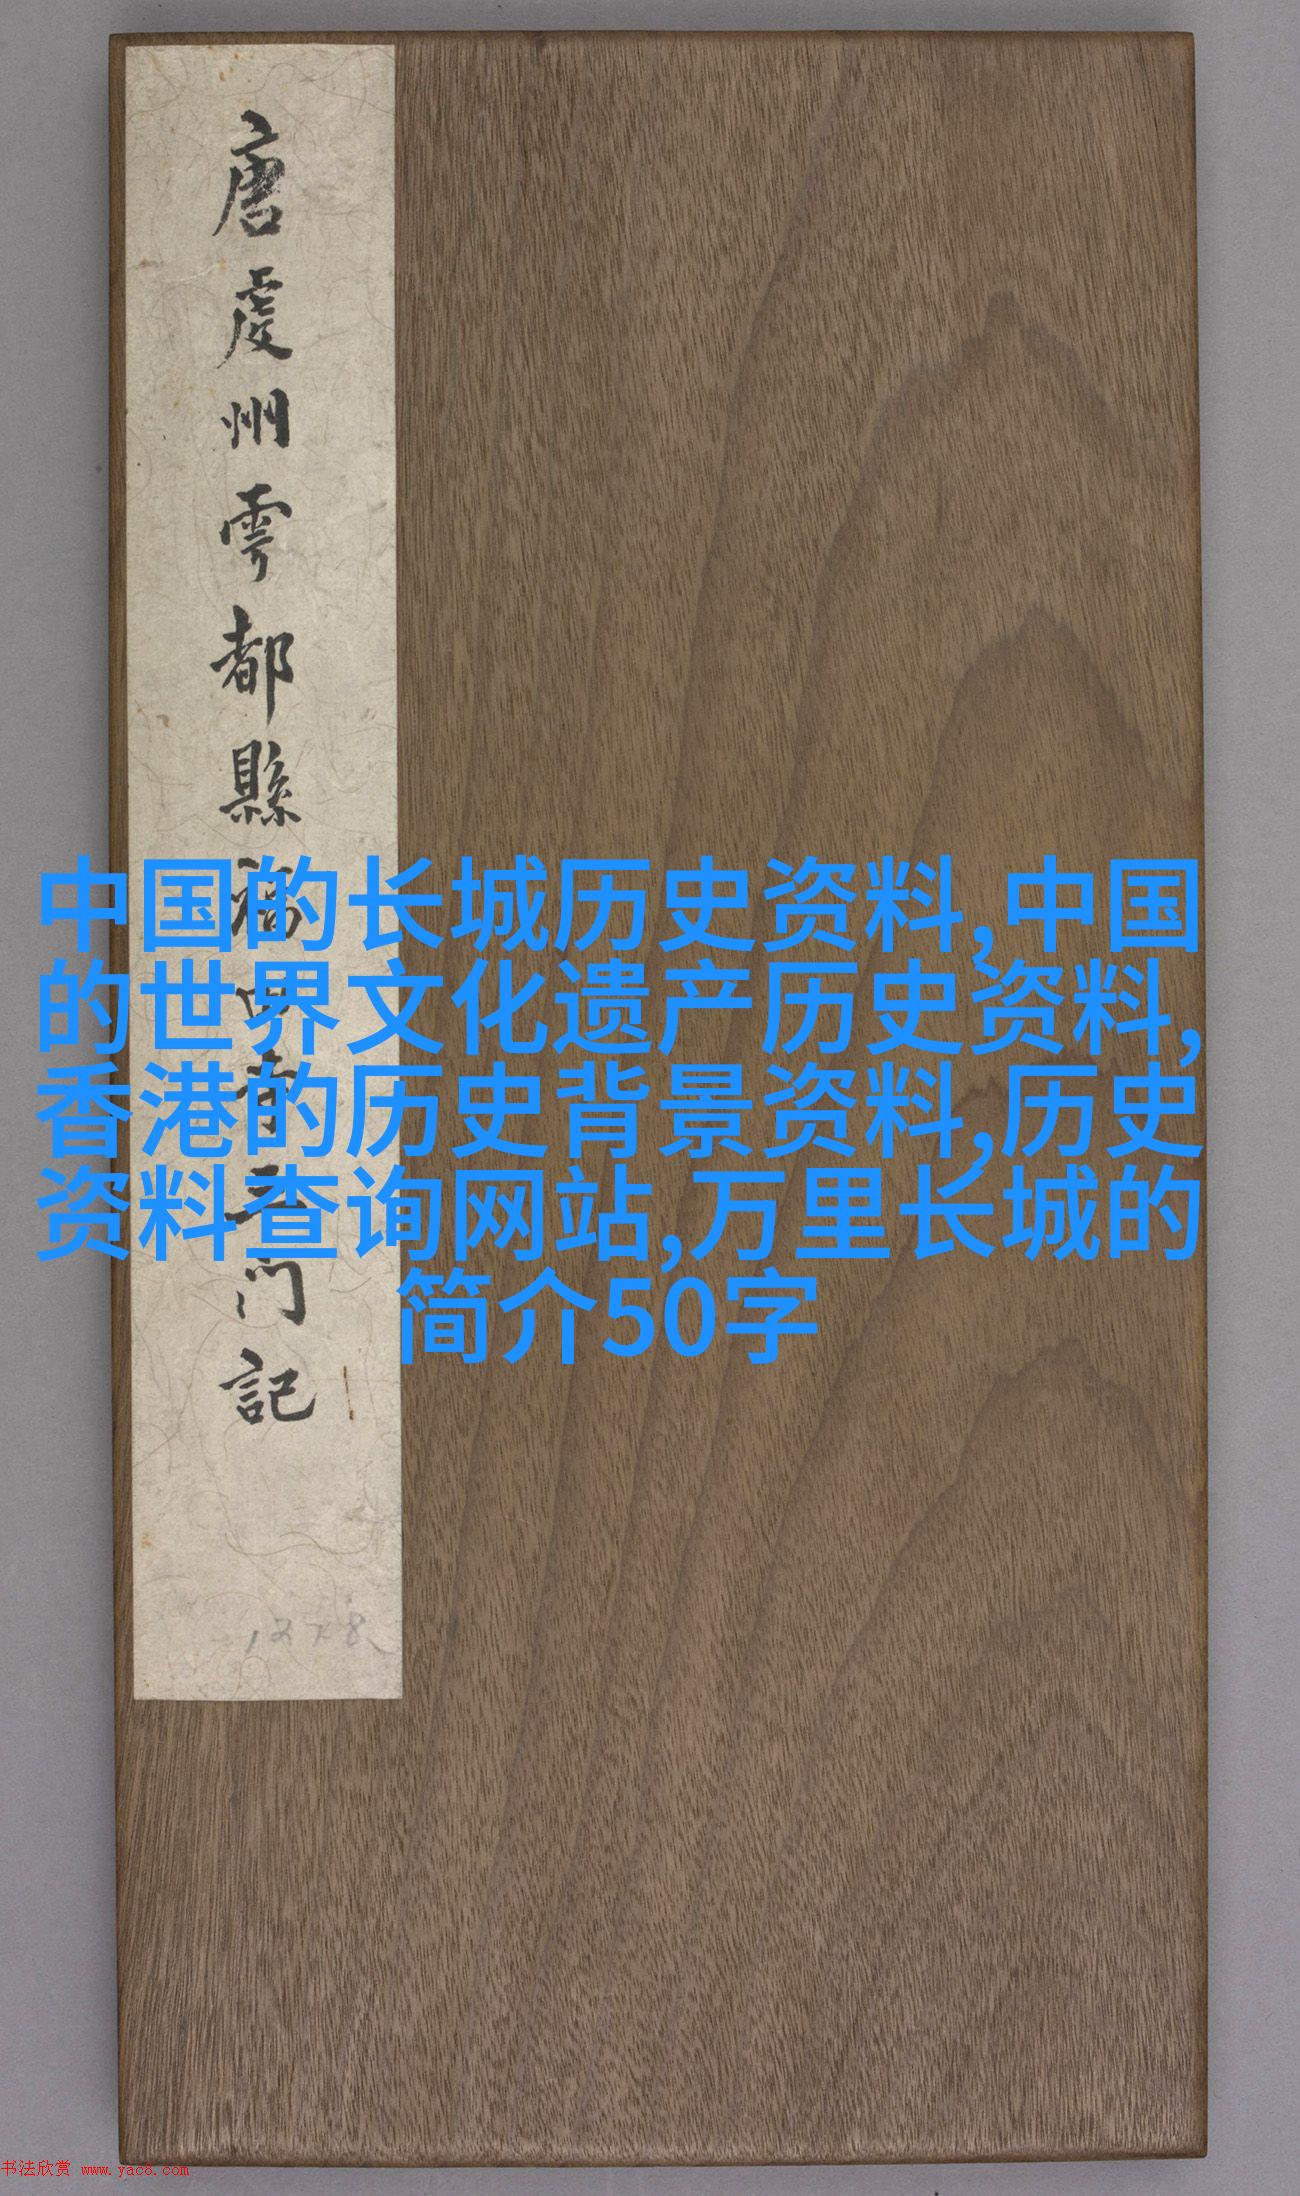 唐虔州雩都縣福田寺三門記
中国的长城历史资料,中国
的世界文化遗产历史资料,
香港的历史背景资料,历史
资料查询网站,万里长城的
简介50字
书法欣赏 www.yac8.com